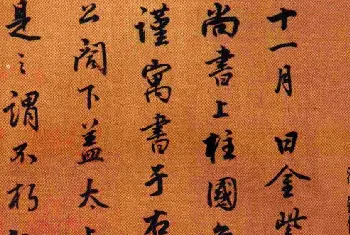 十一月日金紫
尚書上柱國
謹寓書于右
公閤下蓋太
是之謂不朽